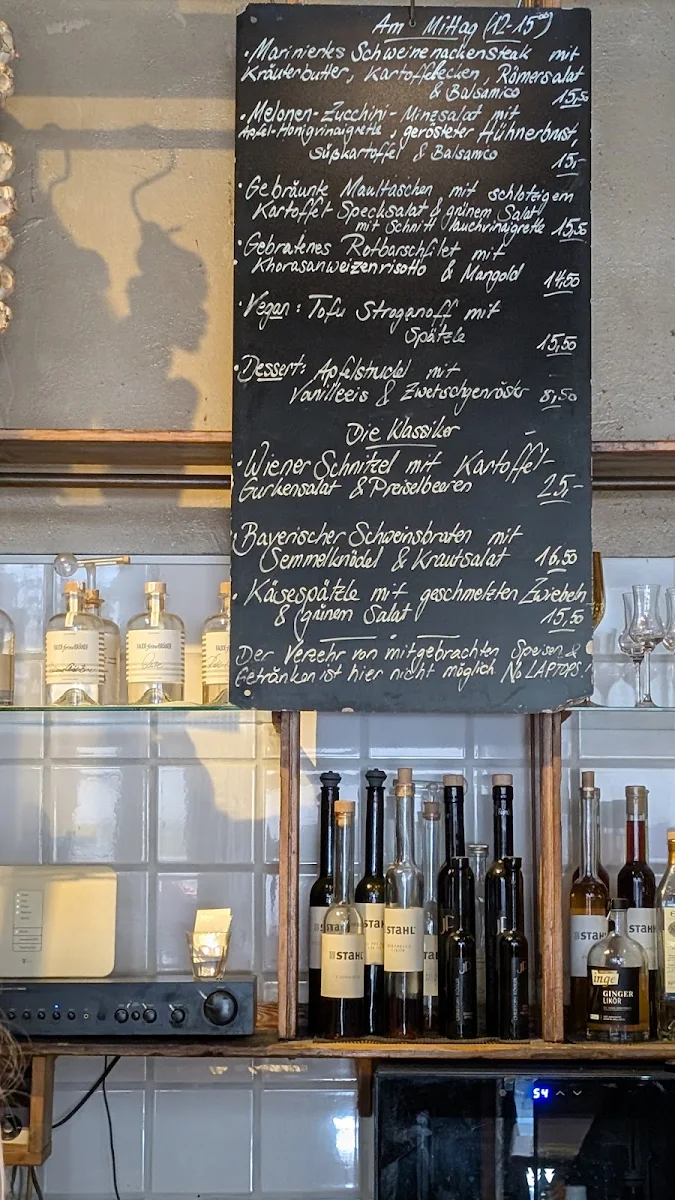 Am Mittag (12-15⁰⁰)
· Mariniertes Schweinenackensteak mit
Kräuterbutter, Kartoffelecken, Römersalat
& Balsamico 15,50
· Melonen-Zucchini-Minzsalat mit
Apfel-Honigvinaigrette, gerösteter Hühnerbrust,
Süßkartoffel & Balsamco
15,-
· Gebräunte Maultaschen mit schlotzigem
Kartoffel Specksalat & grünem Salat
mit Schnittlauchvinaigrette 15,50
· Gebratenes Rotbarschfilet mit
Khorasanweizenrisotto & Mangold
14,50
· Vegan: Tofu Stroganoff mit
Spätzle 15,50
· Dessert: Apfelstrudel mit
Vanilleeis & Zwetschgenröster 8,50
Die Klassiker
· Wiener Schnitzel mit Kartoffel-
Gurkensalat & Preiselbeeren 25,-
· Bayerischer Schweinsbraten mit
Semmelknödel & Krautsalat 16,50
· Käsespätzle mit geschmelzten Zwiebeln
& grünem Salat 15,50
Der Verzehr von mitgebrachten Speisen &
Getränken ist hier nicht möglich No LAPTOPS!
STAHL
STAHL
STAHL
STAHL
STAHL
inge
GINGER
LIKÖR
54